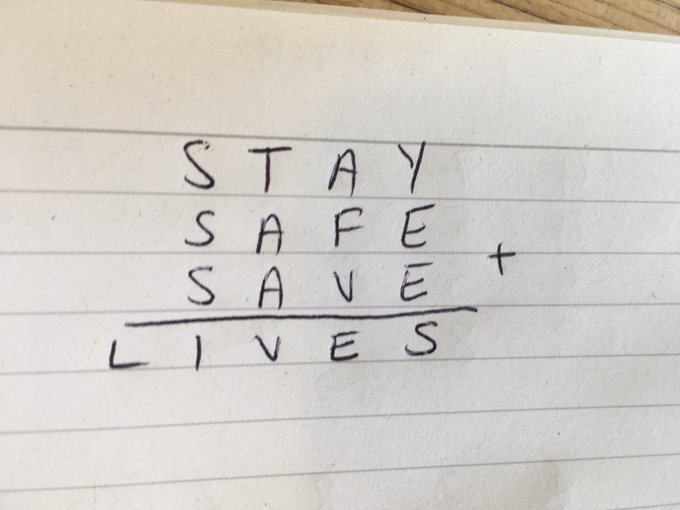 S T A Y
S A F E
S A V E +
L I V E S